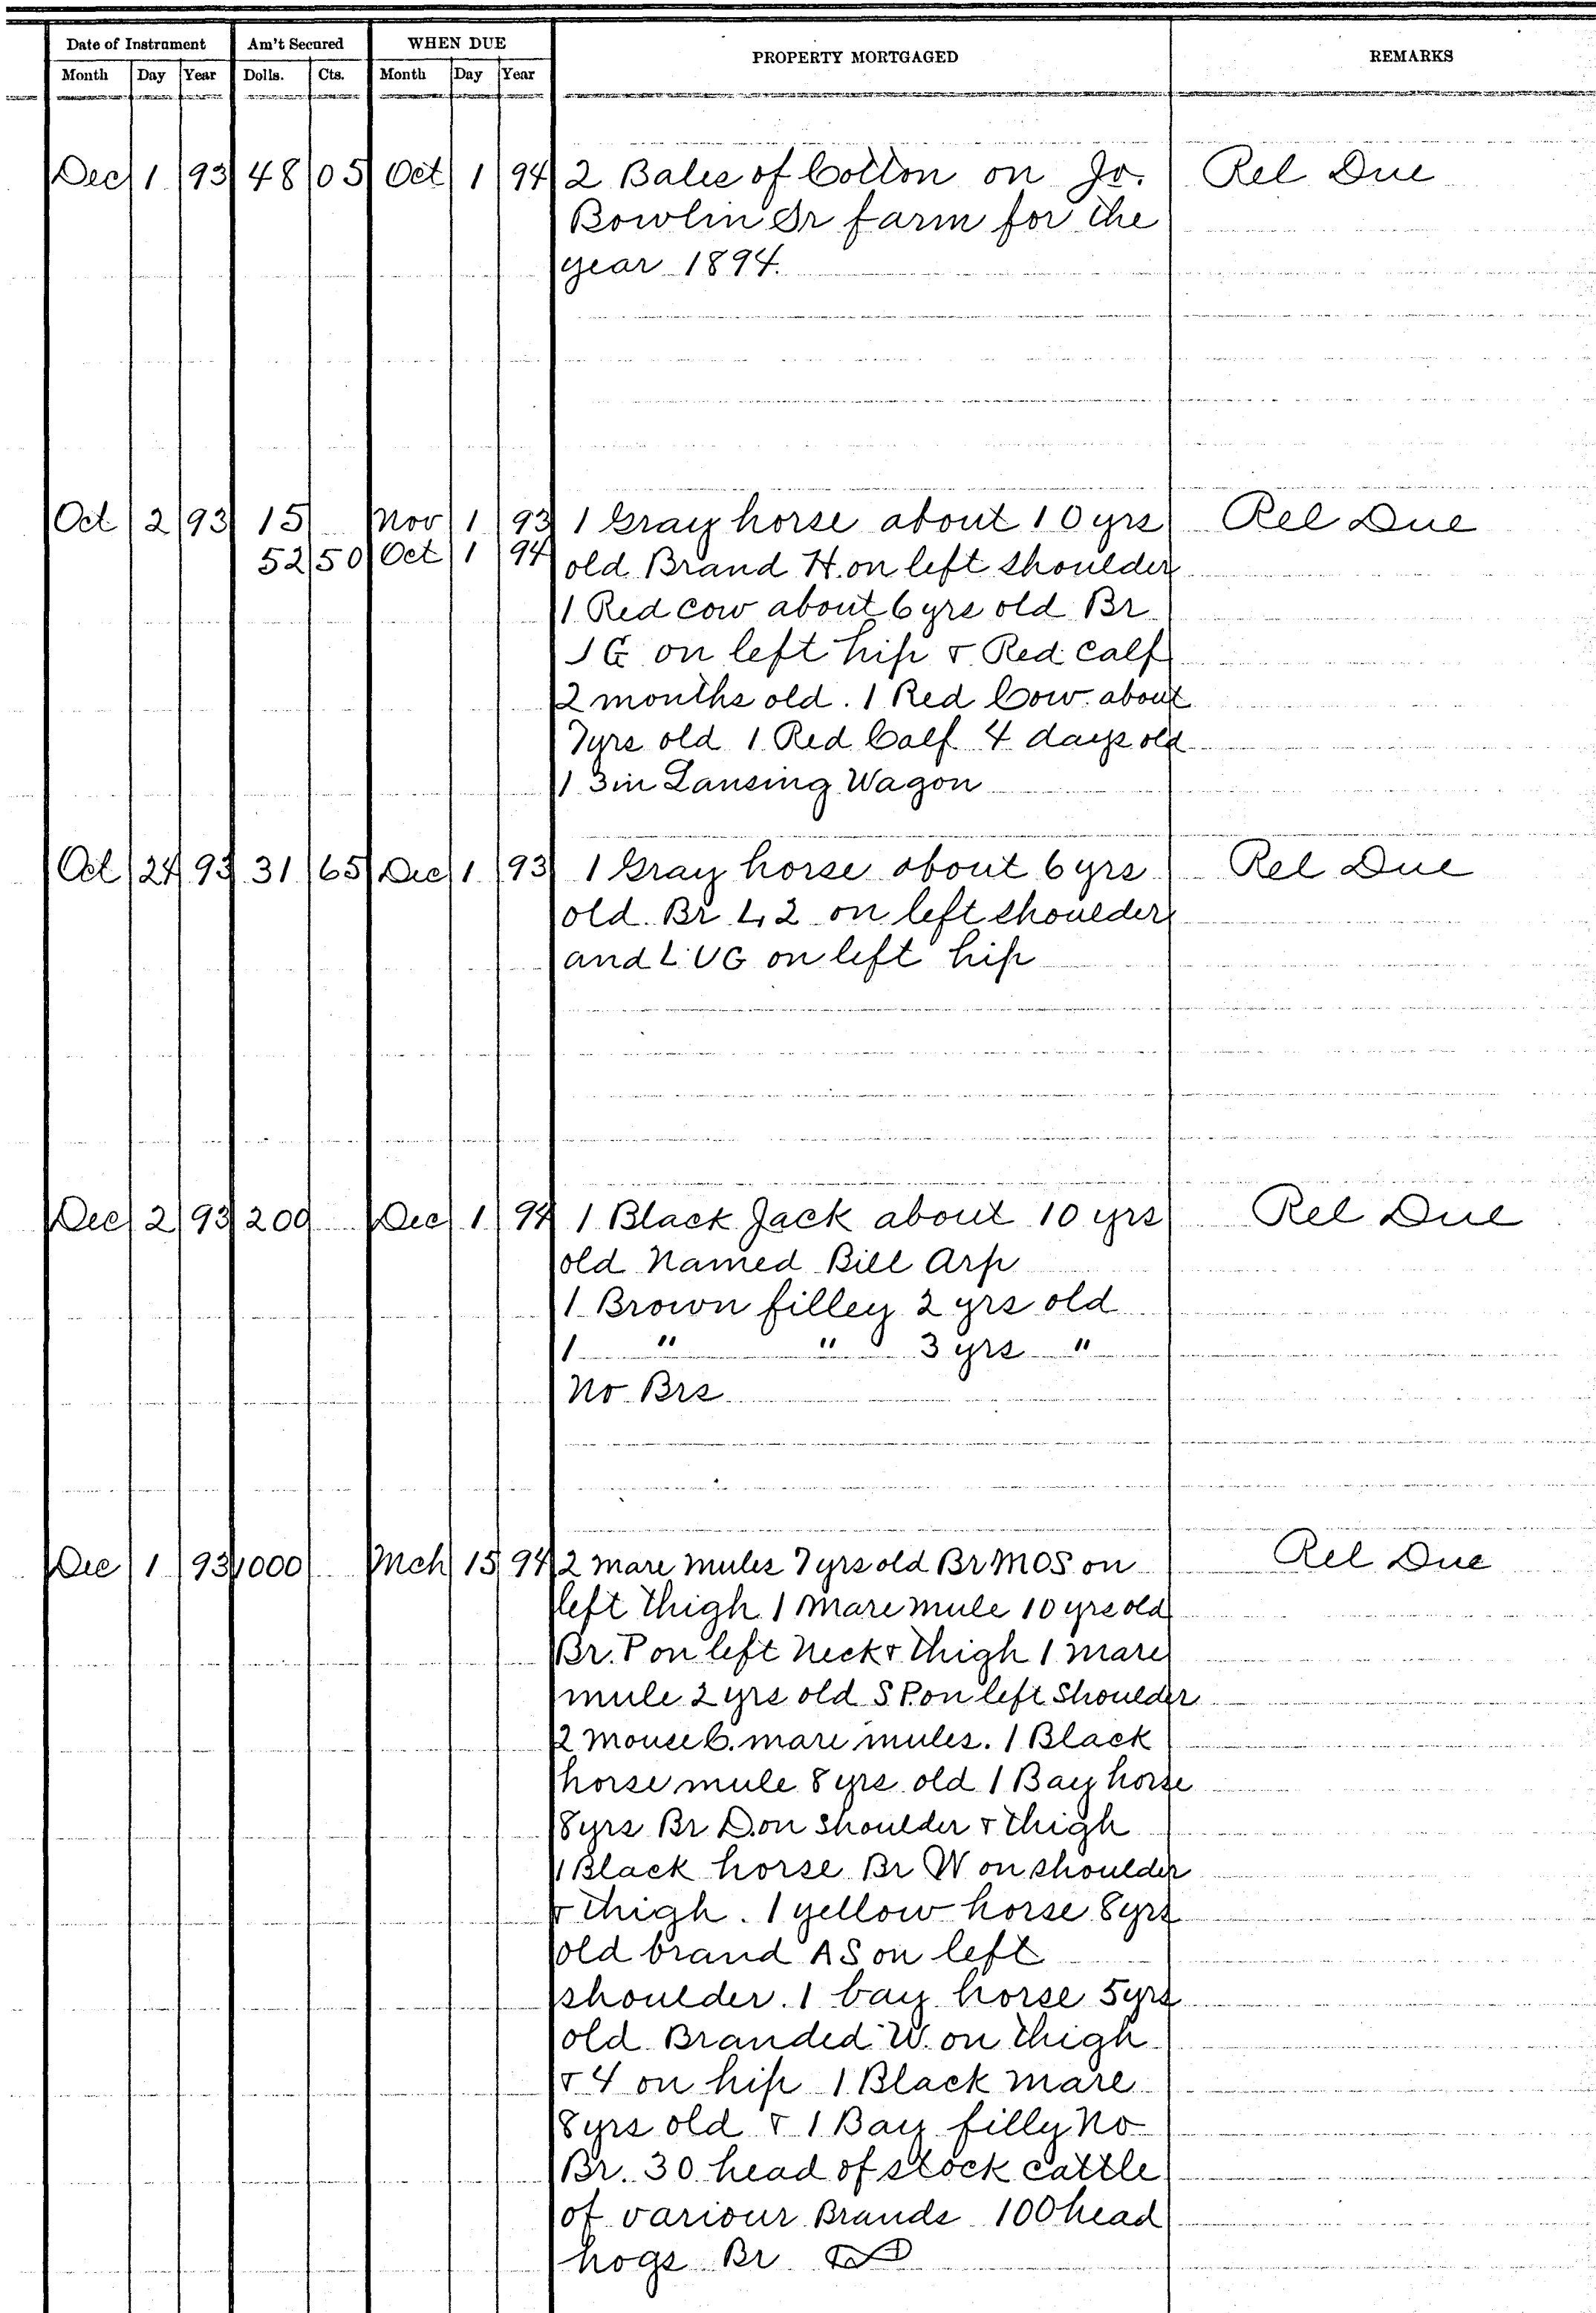 Date of Instrument Am't Secured WHEN DUE PROPERTY MORTGAGED REMARKS
Month Day Year Dolls. Cts. Month Day Year
Dec 1 93 48 05 Oct 1 94 2 Bales of Cotton on Jo. Rel Due
Bowlin Sr farm for the
year 1894.
Oct 2 93 15 Nov 1 93 1 Gray horse about 10 yrs Rel Due
52 50 Oct 1 94 old Brand H. on left shoulder
1 Red cow about 6 yrs old Br
JG on left hip & Red calf
2 months old. 1 Red Cow about
7yrs old 1 Red Calf 4 days old
1 3in Lansing Wagon
Oct 24 93 31 65 Dec 1 93 1 Gray horse about 6 yrs Rel Due
old Br 42 on left shoulder
and LUG on left hip
Dec 2 93 200 Dec 1 94 1 Black Jack about 10 yrs Rel Due
old Named Bill Arp
1 Brown filley 2 yrs old
1 " " 3 yrs "
No Brs
Dec 1 93 1000 Mch 15 94 2 mare mules 7 yrs old Br MOS on Rel Due
left thigh 1 mare mule 10 yrs old
Br. P on left neck & thigh 1 mare
mule 2 yrs old S P. on left Shoulder
2 mouse C. mare mules. 1 Black
horse mule 8 yrs old 1 Bay horse
8yrs Br D. on shoulder & thigh
1 Black horse Br W on shoulder
& thigh. 1 yellow horse 8yrs
old brand AS on left
shoulder. 1 bay horse 5yrs
old Branded W. on thigh
& 4 on hip 1 Black mare
8 yrs old & 1 Bay filly No
Br. 30 head of stock cattle
of variour Brands 100 head
hogs Br